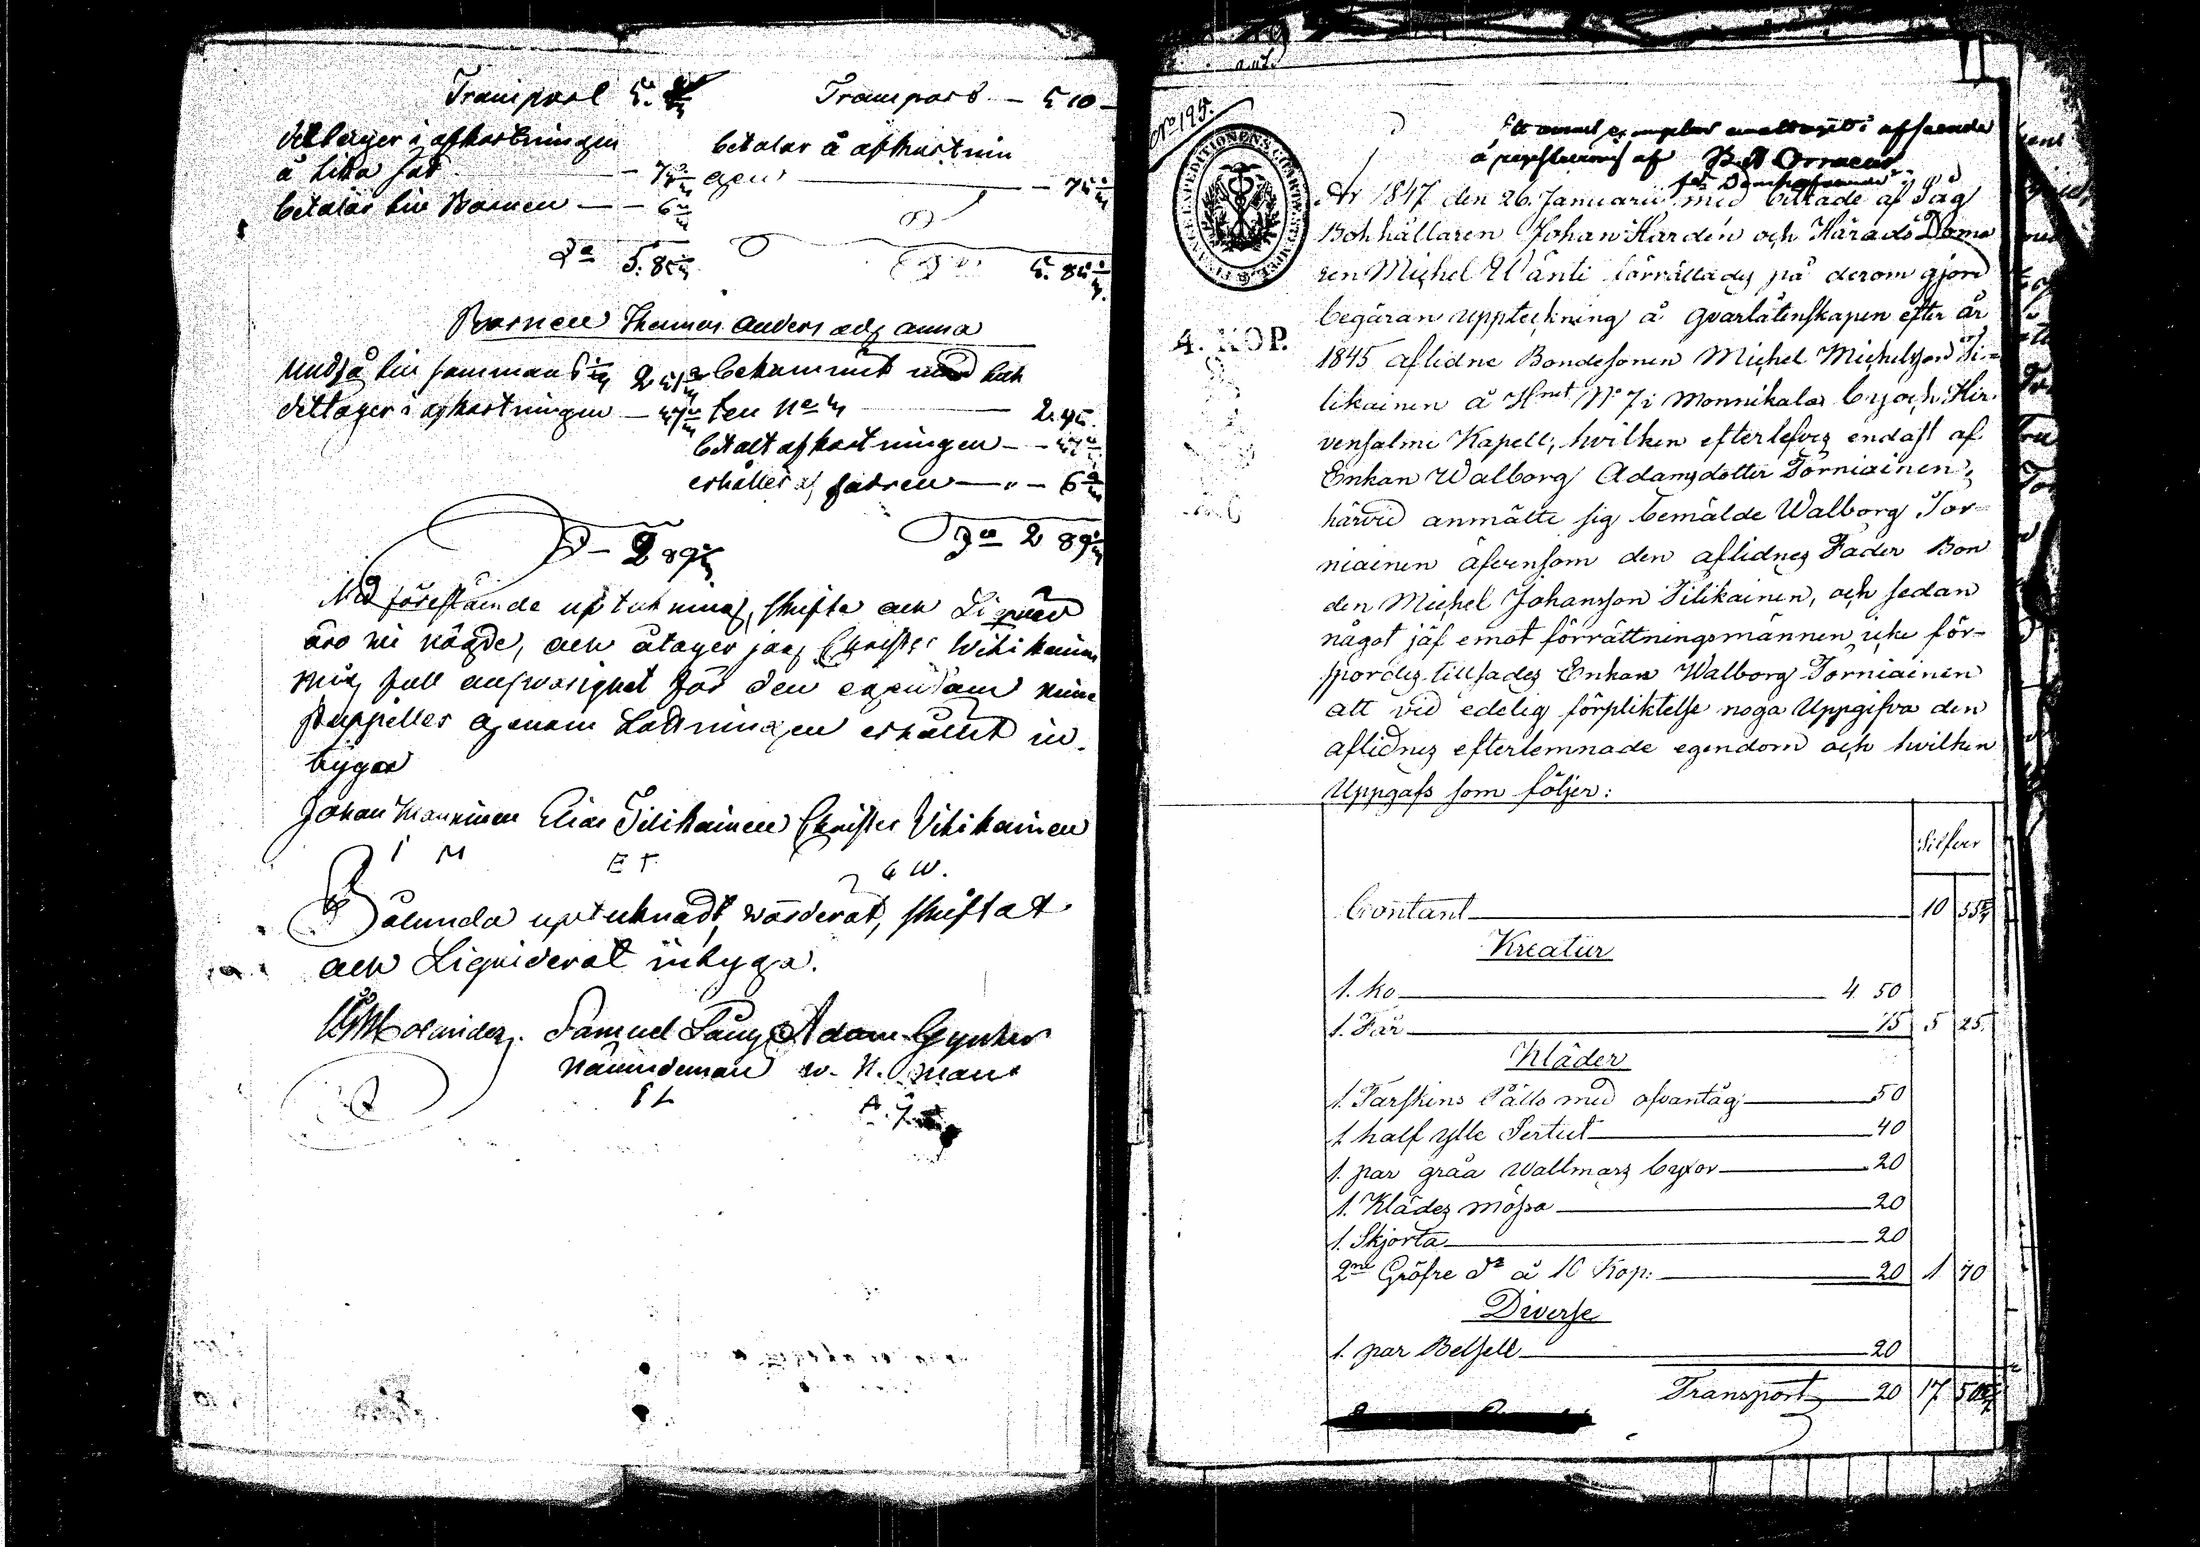 Transport 5.
deltager i afkortningen
å lika sätt
betalar till Barnen
Da 5. 85
Transport 5 10
betalar å afkortnin
gen 75
Da 5. 85
Barnen Thomas Anders och Anna
undfå till sammans
deltager i afkortningen
bekommit
ten No 4 2. 45.
betalt afkortningen
erhåller af fadren 6
Da 2 89
Da 2 89
Med förestående uptekning, skifte och
äro vi nögde, och åtager jag Christer Wihikainen
mig full answarighet för den egendom mine
Pupiller genom Lottningen erhållit in-
tygar
Johan Manninen Elias Tilikainen Christer Vihikainen
I M E T C W.
Sålunda upteknadt, värderat, skiftat
och Liquiderat intyga.
Samuel Lång Adam Gynther
Nämndeman w. N. man
S L A. G.
No 195.
FINANCE EXPEDITIONENS CHARTÆ SIGILL
4. KOP.
År 1847 den 26. Januarii med biträde af Såg
Bokhållaren Johan Hårdén och Härads Doma
ren Michel Wänti förrättades på derom gjord
begäran uppteckning å qvarlåtenskapen efter år
1845 aflidne Bondesonen Michel Michelsson Ti-
likainen å Hmt No 7 i Monnikala by och Hir-
vensalmi Kapell, hvilken efterlefves endast af
Enkan Walborg Adamsdotter Torniainen,
härvid anmälte sig bemälde Walborg Tor-
niainen äfvensom den aflidnes Fader Bon
den Michel Johansson Tilikainen, och sedan
något jäf emot förrättningsmännen icke för-
spordes, tillsades Enkan Walborg Torniainen
att vid edelig förpliktelse noga Uppgifva den
aflidnes efterlemnade egendom och hvilken
Uppgafs som följer:
Silfver
Contant 10 55
Kreatur
1. ko 4 50
1. Får 75 5 25.
Kläder
1. Fårskins Päls med ofvantåg 50
1 half ylle Sertut 40
1. par gråa Wallmars byxor 20
1. Klädes mössa 20
1. Skjorta 20
2ne Gröfre do à 10 Kop: 20 1 70
Diverse
1. par Betsell 20
Transport 20 17 50